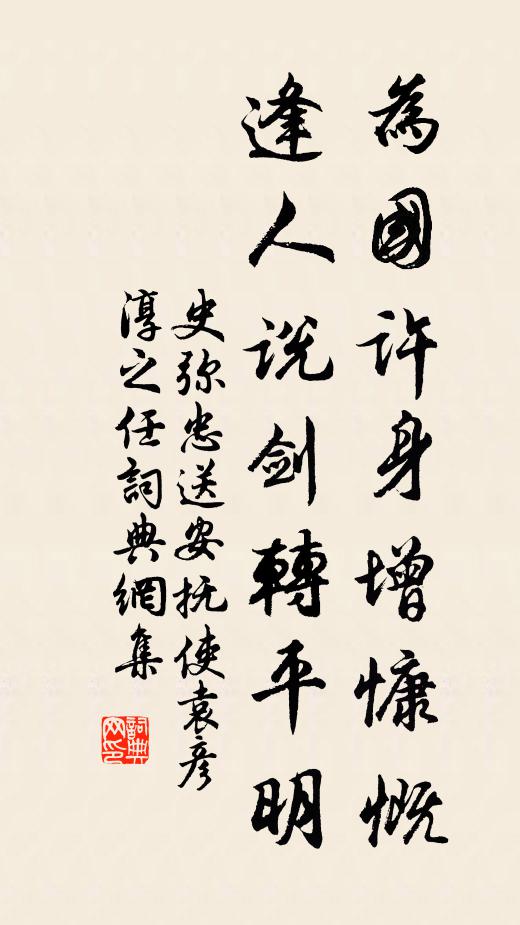 為國許身增慷慨
逢人説劍轉平明
史弥忠送安抚使袁彦
淳之任詞典網集
詞典网印